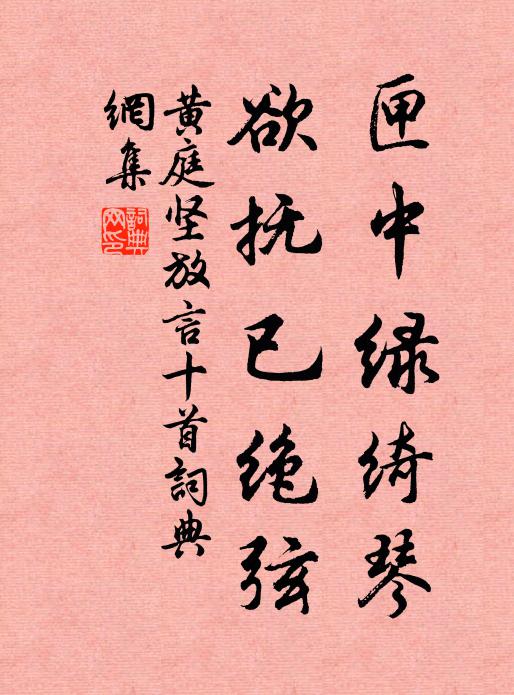 匣中绿绮琴
欲抚已绝弦
黄庭坚放言十首詞典
網集
詞典網印